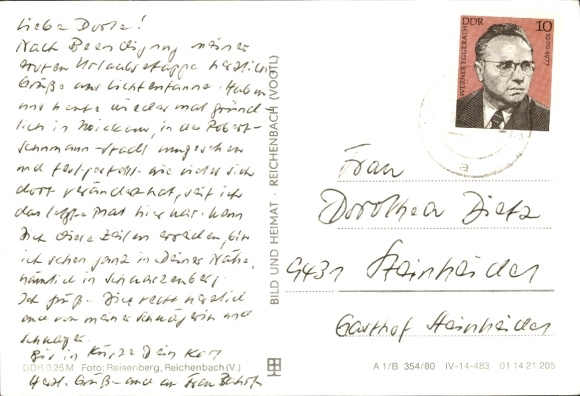 Liebe Dorle!
Nach Beendigung meiner
ersten Urlaubsetappe herzliche
Grüße aus Lichtentanne. Haben
uns heute wieder mal gründ-
lich in Zwickau, in der Robert-
Schumann-Stadt umgesehen
und festgestellt wie vieles sich
dort verändert hat, seit ich
das letzte Mal hier war. Wenn
Dich diese Zeilen erreichen, bin
ich schon ganz in Deiner Nähe,
nämlich in Schwarzenberg.
Ich grüße Dich recht herzlich
auch von meiner Schwägerin und
Schwager.
Bis in Kürze Dein
Herzl. Grüße auch an Frau
DDR 0,25 M Foto: Reisenberg, Reichenbach (V.)
BILD UND HEIMAT · REICHENBACH (VOGTL)
DDR 10
WERNER EGGERATH
1900-1977
Frau
Dorothea Dietz
9431 Steinheidel
Gasthof Steinheidel
A 1/B 354/80 IV-14-483 01 14 21 205